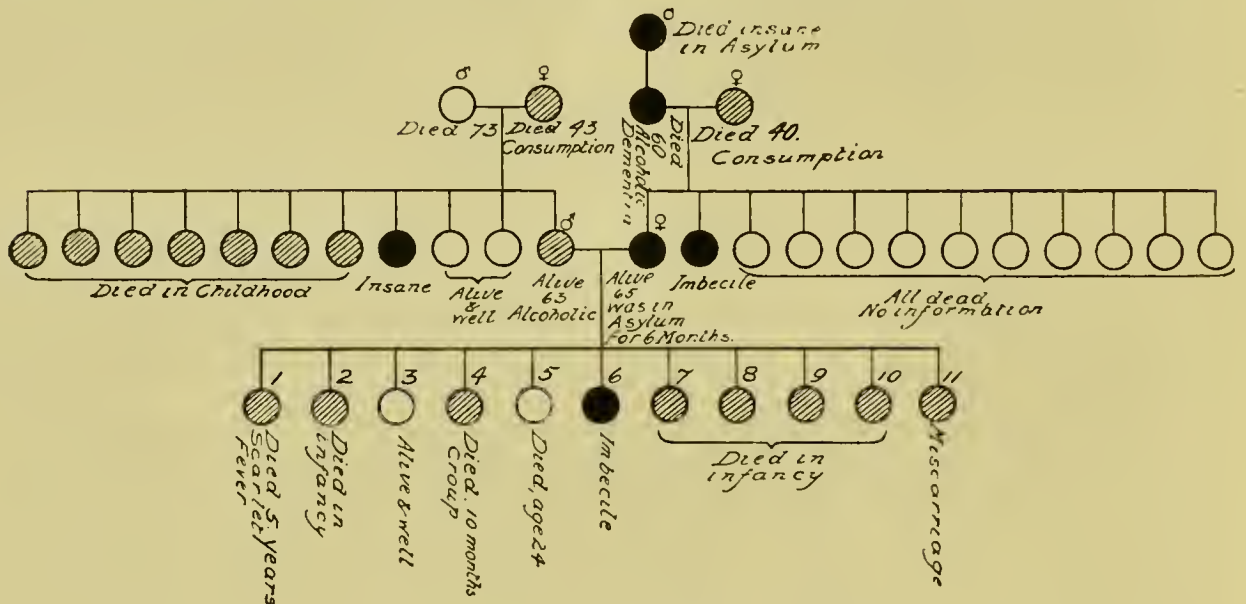 ♂
Died insane
in Asylum
♂
♀
♀
Died 73
Died 43
Consumption
60
Alcoholic
Dementia
Died
Died 40.
Consumption
♂
♀
Died in Childhood
Insane
Alive
&
well
Alive
63
Alcoholic
Alive
65
was in
Asylum
for 6 Months.
Imbecile
All dead
No information
1
2
3
4
5
6
7
8
9
10
11
Died 5. years
Scarlet
Fever
Died in
infancy
Alive & well
Died. 10 months
Croup
Died, age 24
Imbecile
Died in
infancy
Miscarriage